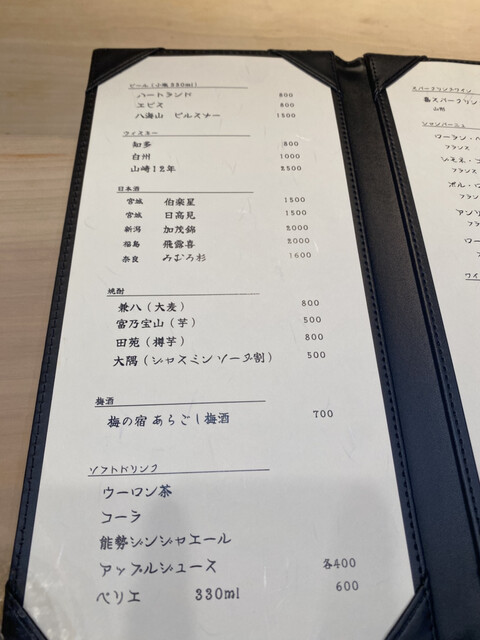 ビール(小瓶 330ml)
ハートランド 800
エビス 800
八海山 ピルスナー 1500
ウィスキー
知多 800
白州 1000
山崎12年 2500
日本酒
宮城 伯楽星 1500
宮城 日高見 1500
新潟 加茂錦 2000
福島 飛露喜 2000
奈良 みむろ杉 1600
焼酎
兼八(大麦) 800
富乃宝山(芋) 500
田苑(樽芋) 800
大隅(ジャスミンソーダ割) 500
梅酒
梅の宿 あらごし梅酒 700
ソフトドリンク
ウーロン茶
コーラ
能勢ジンジャエール
アップルジュース 各400
ペリエ 330ml 600
スパークリングワイン
島スパークリン
山形
シャンパーニュ
ローラン・
フランス
フランス
ポル・ロ
フランス
アンリ
ロー
ワイ